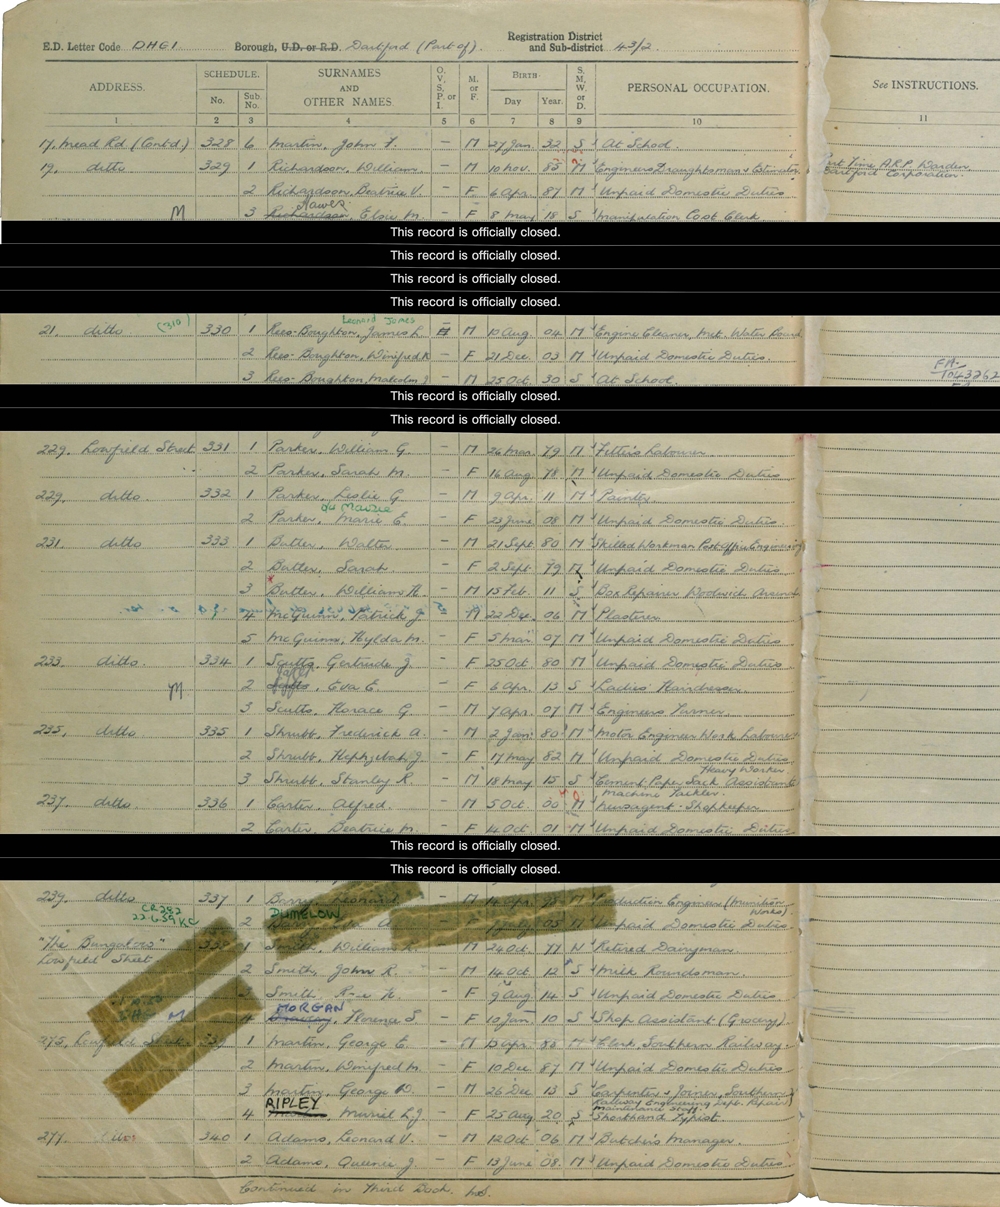 E.D. Letter Code DHGI Borough, U.D. or R.D. Dartford (Part of). Registration District and Sub-district 43/2.
ADDRESS. SCHEDULE. No. Sub. No. SURNAMES AND OTHER NAMES. O. V. S. P. or I. M. or F. BIRTH Day Year. S. M. W. or D. PERSONAL OCCUPATION. See INSTRUCTIONS.
1 2 3 4 5 6 7 8 9 10 11
17, Mead Rd (Contd.) 328 6 Martin, John F. - M 27 Jan 32 S At School.
19, ditto 329 1 Richardson, William - M 10 Nov. 85 M Engineers Draughtsman & Estimator Part Time A.R.P. Warden
Dartford Corporation.
2 Richardson, Beatrice V. - F 6 Apr. 87 M Unpaid Domestic Duties
Hawes
M 3 Richardson, Elsie M. - F 8 May 18 S Manipulation Cost Clerk
This record is officially closed.
This record is officially closed.
This record is officially closed.
This record is officially closed.
Leonard James
21, ditto (310) 330 1 Rees-Boughton, James L. M 10 Aug. 04 M Engine Cleaner, Met. Water Board
2 Rees-Boughton, Winifred - F 21 Dec. 03 M Unpaid Domestic Duties.
3 Rees-Boughton, Malcolm J - M 25 Oct. 30 S At School. FA-
1043262
This record is officially closed.
This record is officially closed.
229, Lowfield Street 331 1 Parker, William G. - M 26 Mar. 79 M Fitters Labourer
2 Parker, Sarah M. - F 16 Aug 78 M Unpaid Domestic Duties
229, ditto. 332 1 Parker, Leslie G. - M 9 Apr. 11 M Painter
2 Parker, Marie E. - F 23 June 08 M Unpaid Domestic Duties.
231, ditto. 333 1 Butler, Walter. - M 21 Sept 80 M Skilled Workman Post Office Engineering
2 Butler, Sarah. - F 2 Sept. 79 M Unpaid Domestic Duties
3 Butler, William H. - M 15 Feb. 11 S Box Repairer Woolwich Arsenal
4 McGuinn, Patrick J. M 22 Dec. 06 M Plasterer
5 McGuinn, Hylda M. - F 5 Mar. 07 M Unpaid Domestic Duties
233, ditto. 334 1 Scutts, Gertrude J. - F 25 Oct 80 M Unpaid Domestic Duties
M 2 Scutts, Eva E. - F 6 Apr. 13 S Ladies Hairdresser.
3 Scutts, Horace G. - M 7 Apr. 07 M Engineers Turner.
235, ditto. 335 1 Shrubb, Frederick A. - M 2 Jan. 80 M Motor Engineer Work Labourer
2 Shrubb, Hephzibah J. - F 17 May 82 M Unpaid Domestic Duties
Heavy Worker
3 Shrubb, Stanley R. - M 18 May 15 S Cement Paper Sack Assistant
Machine Tackler.
237, ditto. 336 1 Carter, Alfred. - M 5 Oct. 00 M Newsagent-Shopkeeper
2 Carter, Beatrice M. - F 14 Oct. 01 M Unpaid Domestic Duties
This record is officially closed.
This record is officially closed.
239, ditto 337 1 Barry, Leonard - M 14 Apr. M Production Engineer (Munition
Works)
CR282
22.6.59 KC
DUMELOW
2 05 M Unpaid Domestic Duties.
"The Bungalow" 1 Smith, William - M 24 Oct. 77 Retired Dairyman.
Lowfield Street
2 Smith, John R. - M 14 Oct. 12 S Milk Roundsman.
Smith, - F 9 Aug. 14 S Unpaid Domestic Duties
MORGAN
M 4 Florence S. - F 10 Jan. 10 S Shop Assistant (Grocery)
275, Lowfield Street 1 Martin, George E. - M Apr. M Clerk, Southern Railway.
2 Martin, Winifred M. - F 10 Dec. 87 M Unpaid Domestic Duties
3 Martin, George W. - M 26 Dec 13 S Carpenter & Joiner, Southern
Railway Engineering Dept. Repairs
Maintenance Staff.
RIPLEY
4 Muriel L.J. - F 25 Aug 20 S Shorthand Typist
277, ditto 340 1 Adams, Leonard V. - M 12 Oct 06 M Butchers Manager.
2 Adams, Queenie J. - F 13 June 08. M Unpaid Domestic Duties.
Continued in Third Doch.